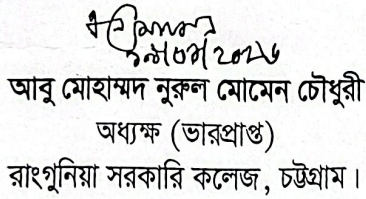 আবু মোহাম্মদ নুরুল মোমেন চৌধুরী
অধ্যক্ষ (ভারপ্রাপ্ত)
রাংগুনিয়া সরকারি কলেজ, চট্টগ্রাম।